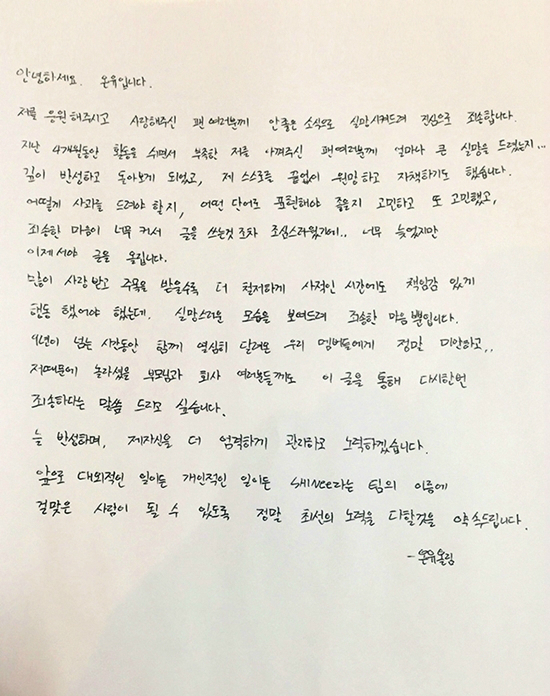 안녕하세요. 온유입니다.
저를 응원해주시고 사랑해주신 팬 여러분께 안좋은 소식으로 실망시켜드려 진심으로 죄송합니다.
지난 4개월동안 활동을 쉬면서 부족한 저를 아껴주신 팬여러분께 얼마나 큰 실망을 드렸는지...
깊이 반성하고 돌아보게 되었고, 제 스스로를 끝없이 원망하고 자책하기도 했습니다.
어떻게 사과를 드려야 할지, 어떤 단어로 표현해야 좋을지 고민하고 또 고민했고,
죄송한 마음이 너무 커서 글을 쓰는것 조차 조심스러웠기에.. 너무 늦었지만
이제서야 글을 올립니다.
많이 사랑 받고 주목을 받을수록 더 철저하게 사적인 시간에도 책임감 있게
행동 했어야 했는데. 실망스러운 모습을 보여드려 죄송한 마음 뿐입니다.
9년이 넘는 시간동안 함께 열심히 달려온 우리 멤버들에게 정말 미안하고,,
저때문에 놀라셨을 부모님과 회사 여러분들께도 이 글을 통해 다시한번
죄송하다는 말씀 드리고 싶습니다.
늘 반성하며, 제자신을 더 엄격하게 관리하고 노력하겠습니다.
앞으로 대외적인 일이든 개인적인 일이든 SHINee라는 팀의 이름에
걸맞은 사람이 될 수 있도록 정말 최선의 노력을 다할것을 약속드립니다.
-온유올림